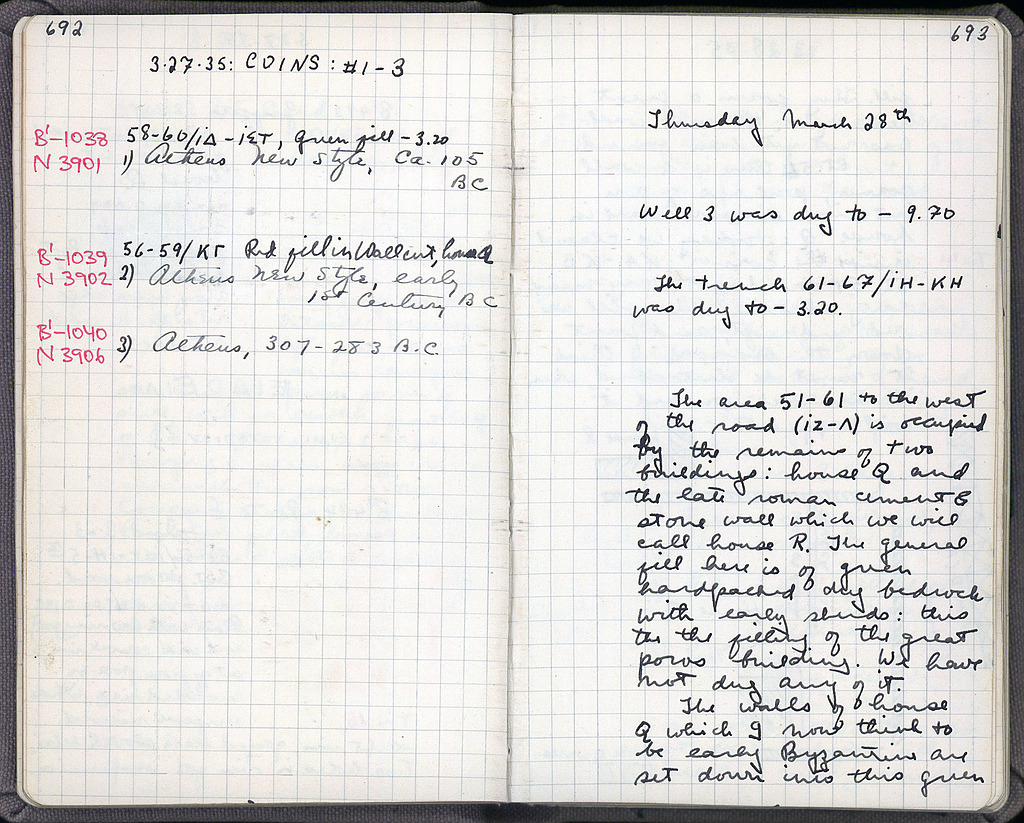 692
3·27·35: COINS: #1-3
B'-1038 58-60/ιΔ-ιΣΤ, green fill -3.20
N 3901 1) Athens New Style, Ca. 105
BC
B'-1039 56-59/ΚΓ Red fill in Wall cut, house Q
N 3902 2) Athens New Style, early
1st Century BC
B'-1040
N 3906 3) Athens, 307-283 B.C
693
Thursday March 28th
Well 3 was dug to - 9.70
The trench 61-67/ιΗ-ΚΗ
was dug to - 3.20.
The area 51-61 to the west
of the road (ιΖ-Λ) is occupied
by the remains of two
buildings: house Q and
the late roman cement &
stone wall which we will
call house R. The general
fill here is of green
hardpacked dug bedrock
with early sherds: this
the filling of the great
poros building. We have
not dug any of it.
The walls of house
Q which I now think to
be early Byzantine are
set down into this green